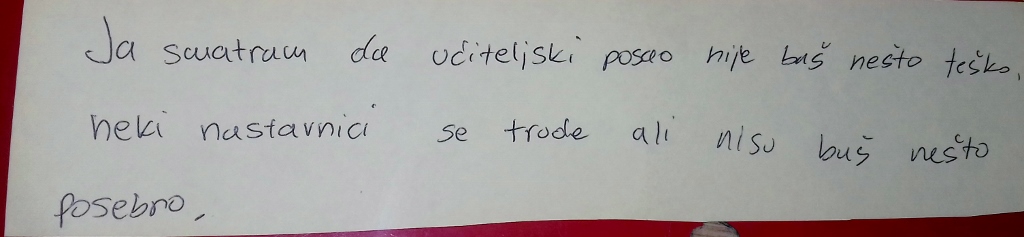 Ja smatram da učiteljski posao nije baš nešto teško,
neki nastavnici se trude ali nisu baš nešto
posebno,